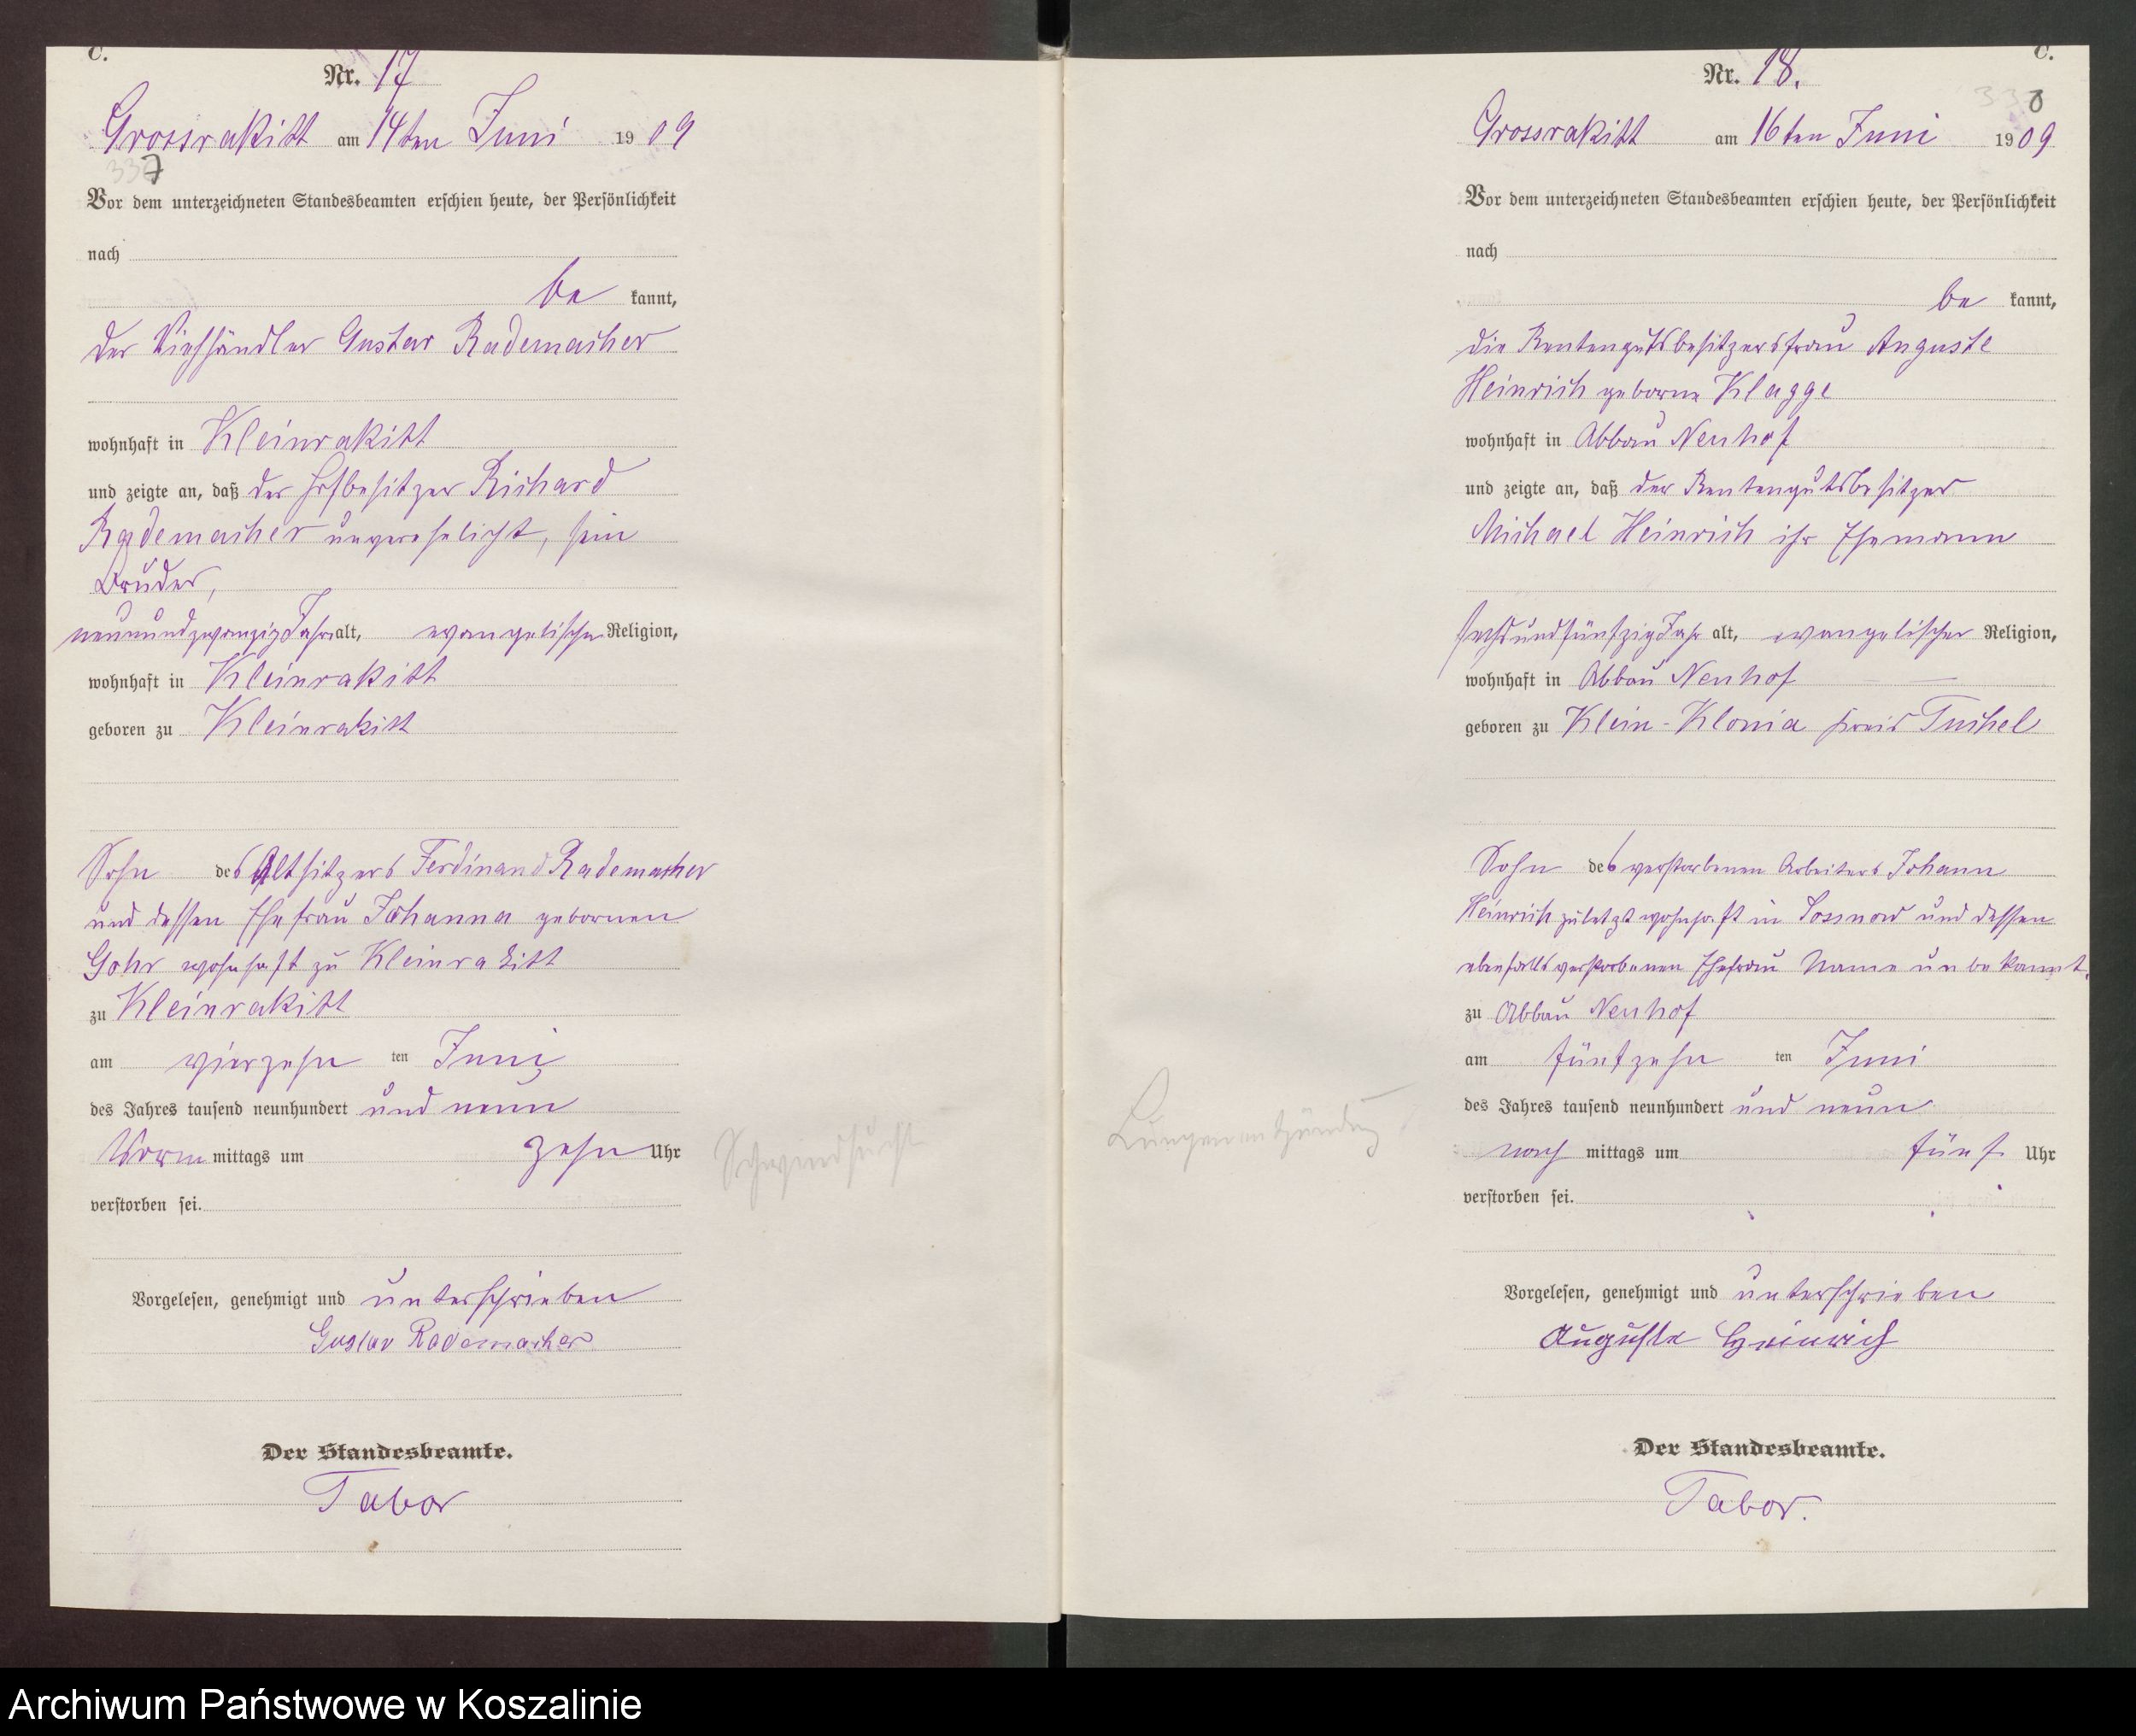 C.
Nr. 17
Grossrakitt am 14ten Juni 1909
337
Vor dem unterzeichneten Standesbeamten erschien heute, der Persönlichkeit
nach
be kannt,
der Viehhändler Gustav Rademacher
wohnhaft in Kleinrakitt
und zeigte an, daß der Hofbesitzer Richard
Rademacher unverehelicht, sein
Bruder,
neunundzwanzig Jahre alt, evangelischer Religion,
wohnhaft in Kleinrakitt
geboren zu Kleinrakitt
Sohn des Altsitzers Ferdinand Rademacher
und dessen Ehefrau Johanna gebornen
Gohr wohnhaft zu Kleinrakitt
zu Kleinrakitt
am vierzehn ten Juni
des Jahres tausend neunhundert und neun
Vorm mittags um zehn Uhr
Schwindsucht
verstorben sei.
Vorgelesen, genehmigt und unterschrieben
Gustav Rademacher
Der Standesbeamte.
Tabor
C.
Nr. 18.
338
Grossrakitt am 16ten Juni 1909
Vor dem unterzeichneten Standesbeamten erschien heute, der Persönlichkeit
nach
be kannt,
die Rentengutsbesitzersfrau Auguste
Heinrich geborne Klagge
wohnhaft in Abbau Neuhof
und zeigte an, daß der Rentengutsbesitzer
Michael Heinrich ihr Ehemann
sechsundfünfzig Jahr alt, evangelischer Religion,
wohnhaft in Abbau Neuhof
geboren zu Klein-Klonia Kreis Tuchel
Sohn des verstorbenen Arbeiters Johann
Heinrich zuletzt wohnhaft in Sossnow und dessen
ebenfalls verstorbenen Ehefrau Name unbekannt.
zu Abbau Neuhof
am fünfzehn ten Juni
des Jahres tausend neunhundert und neun
Lungenentzündung
nach mittags um fünf Uhr
verstorben sei.
Vorgelesen, genehmigt und unterschrieben
Auguste Heinrich
Der Standesbeamte.
Tabor.
Archiwum Państwowe w Koszalinie